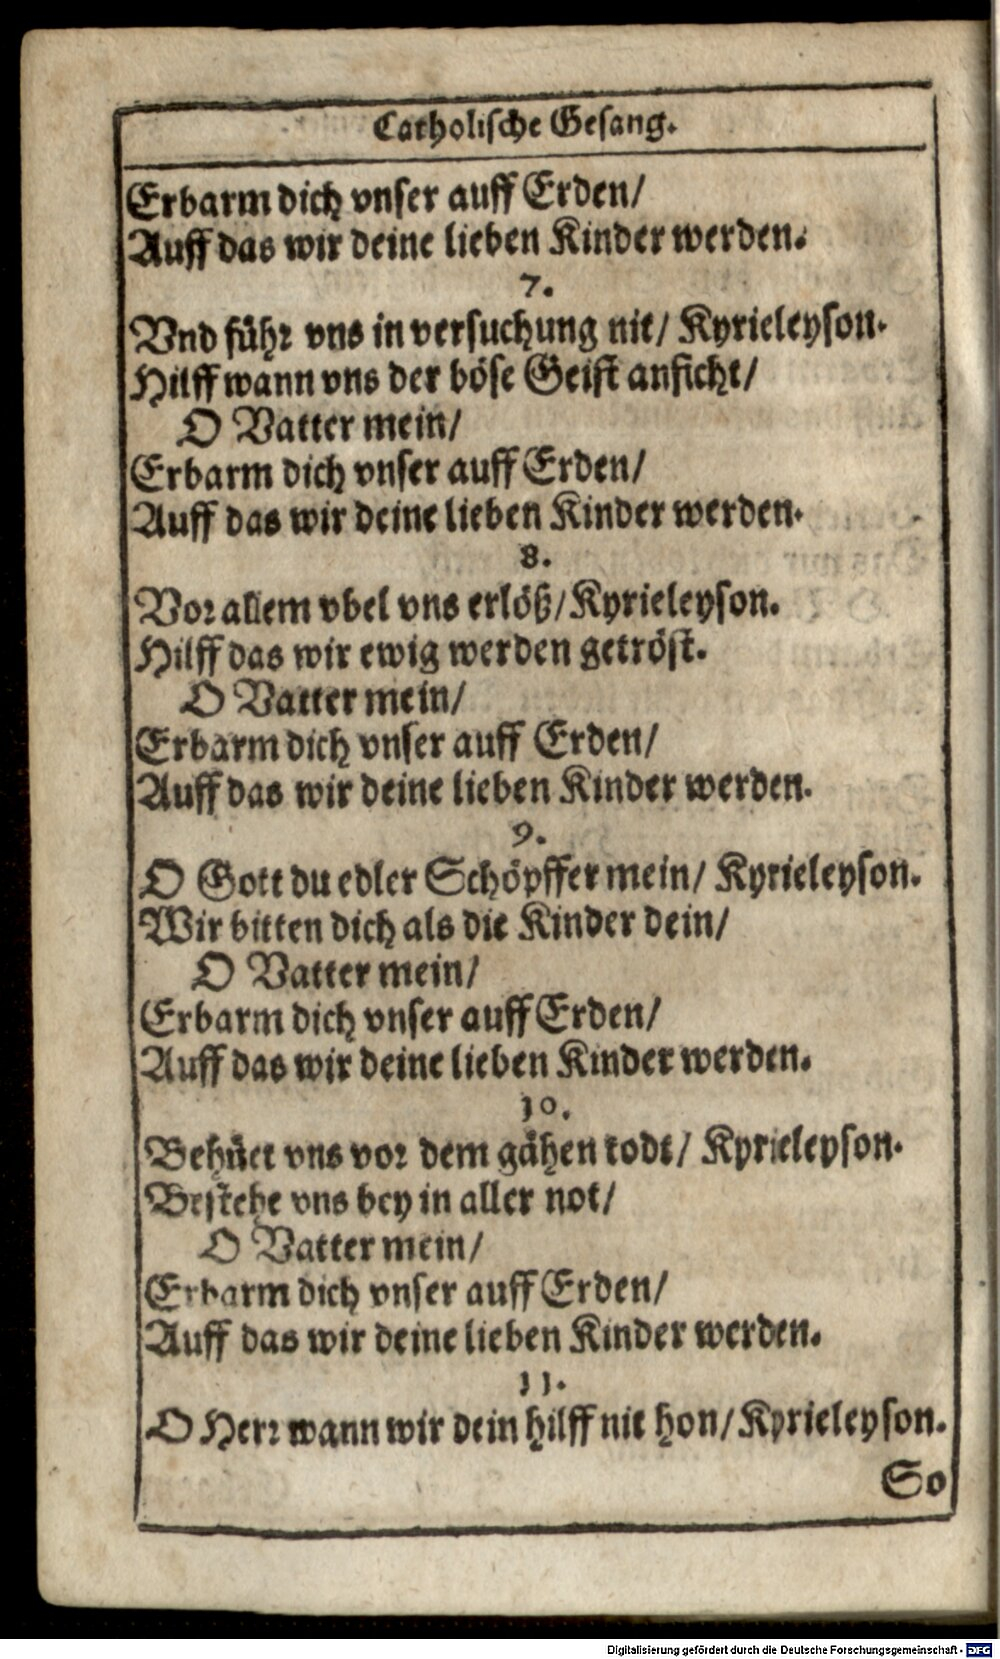 Catholische Gesang.
Erbarm dich vnser auff Erden/
Auff das wir deine lieben Kinder werden.
7.
Vnd führ vns in versuchung nit/ Kyrieleyson.
Hilff wann vns der böse Geist anficht/
O Vatter mein/
Erbarm dich vnser auff Erden/
Auff das wir deine lieben Kinder werden.
8.
Vor allem vbel vns erlöß/ Kyrieleyson.
Hilff das wir ewig werden getröst.
O Vatter mein/
Erbarm dich vnser auff Erden/
Auff das wir deine lieben Kinder werden.
9.
O Gott du edler Schöpffer mein/ Kyrieleyson.
Wir bitten dich als die Kinder dein/
O Vatter mein/
Erbarm dich vnser auff Erden/
Auff das wir deine lieben Kinder werden.
10.
Behüet vns vor dem gähen todt/ Kyrieleyson.
Bestehe vns bey in aller not/
O Vatter mein/
Erbarm dich vnser auff Erden/
Auff das wir deine lieben Kinder werden.
11.
O Herr wann wir dein hilff nit hon/ Kyrieleyson.
So
Digitalisierung gefördert durch die Deutsche Forschungsgemeinschaft - DFG